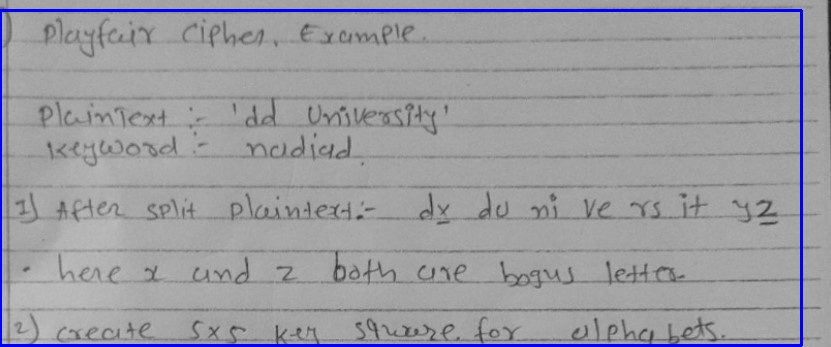 ) Playfair Cipher. Example.
PlainText :- 'dd University'
Keyword :- nadiad.
1) After split plaintext:- dx du ni ve rs it yz
• here x and z both are bogus letter
2) create 5x5 key square for alphabets.